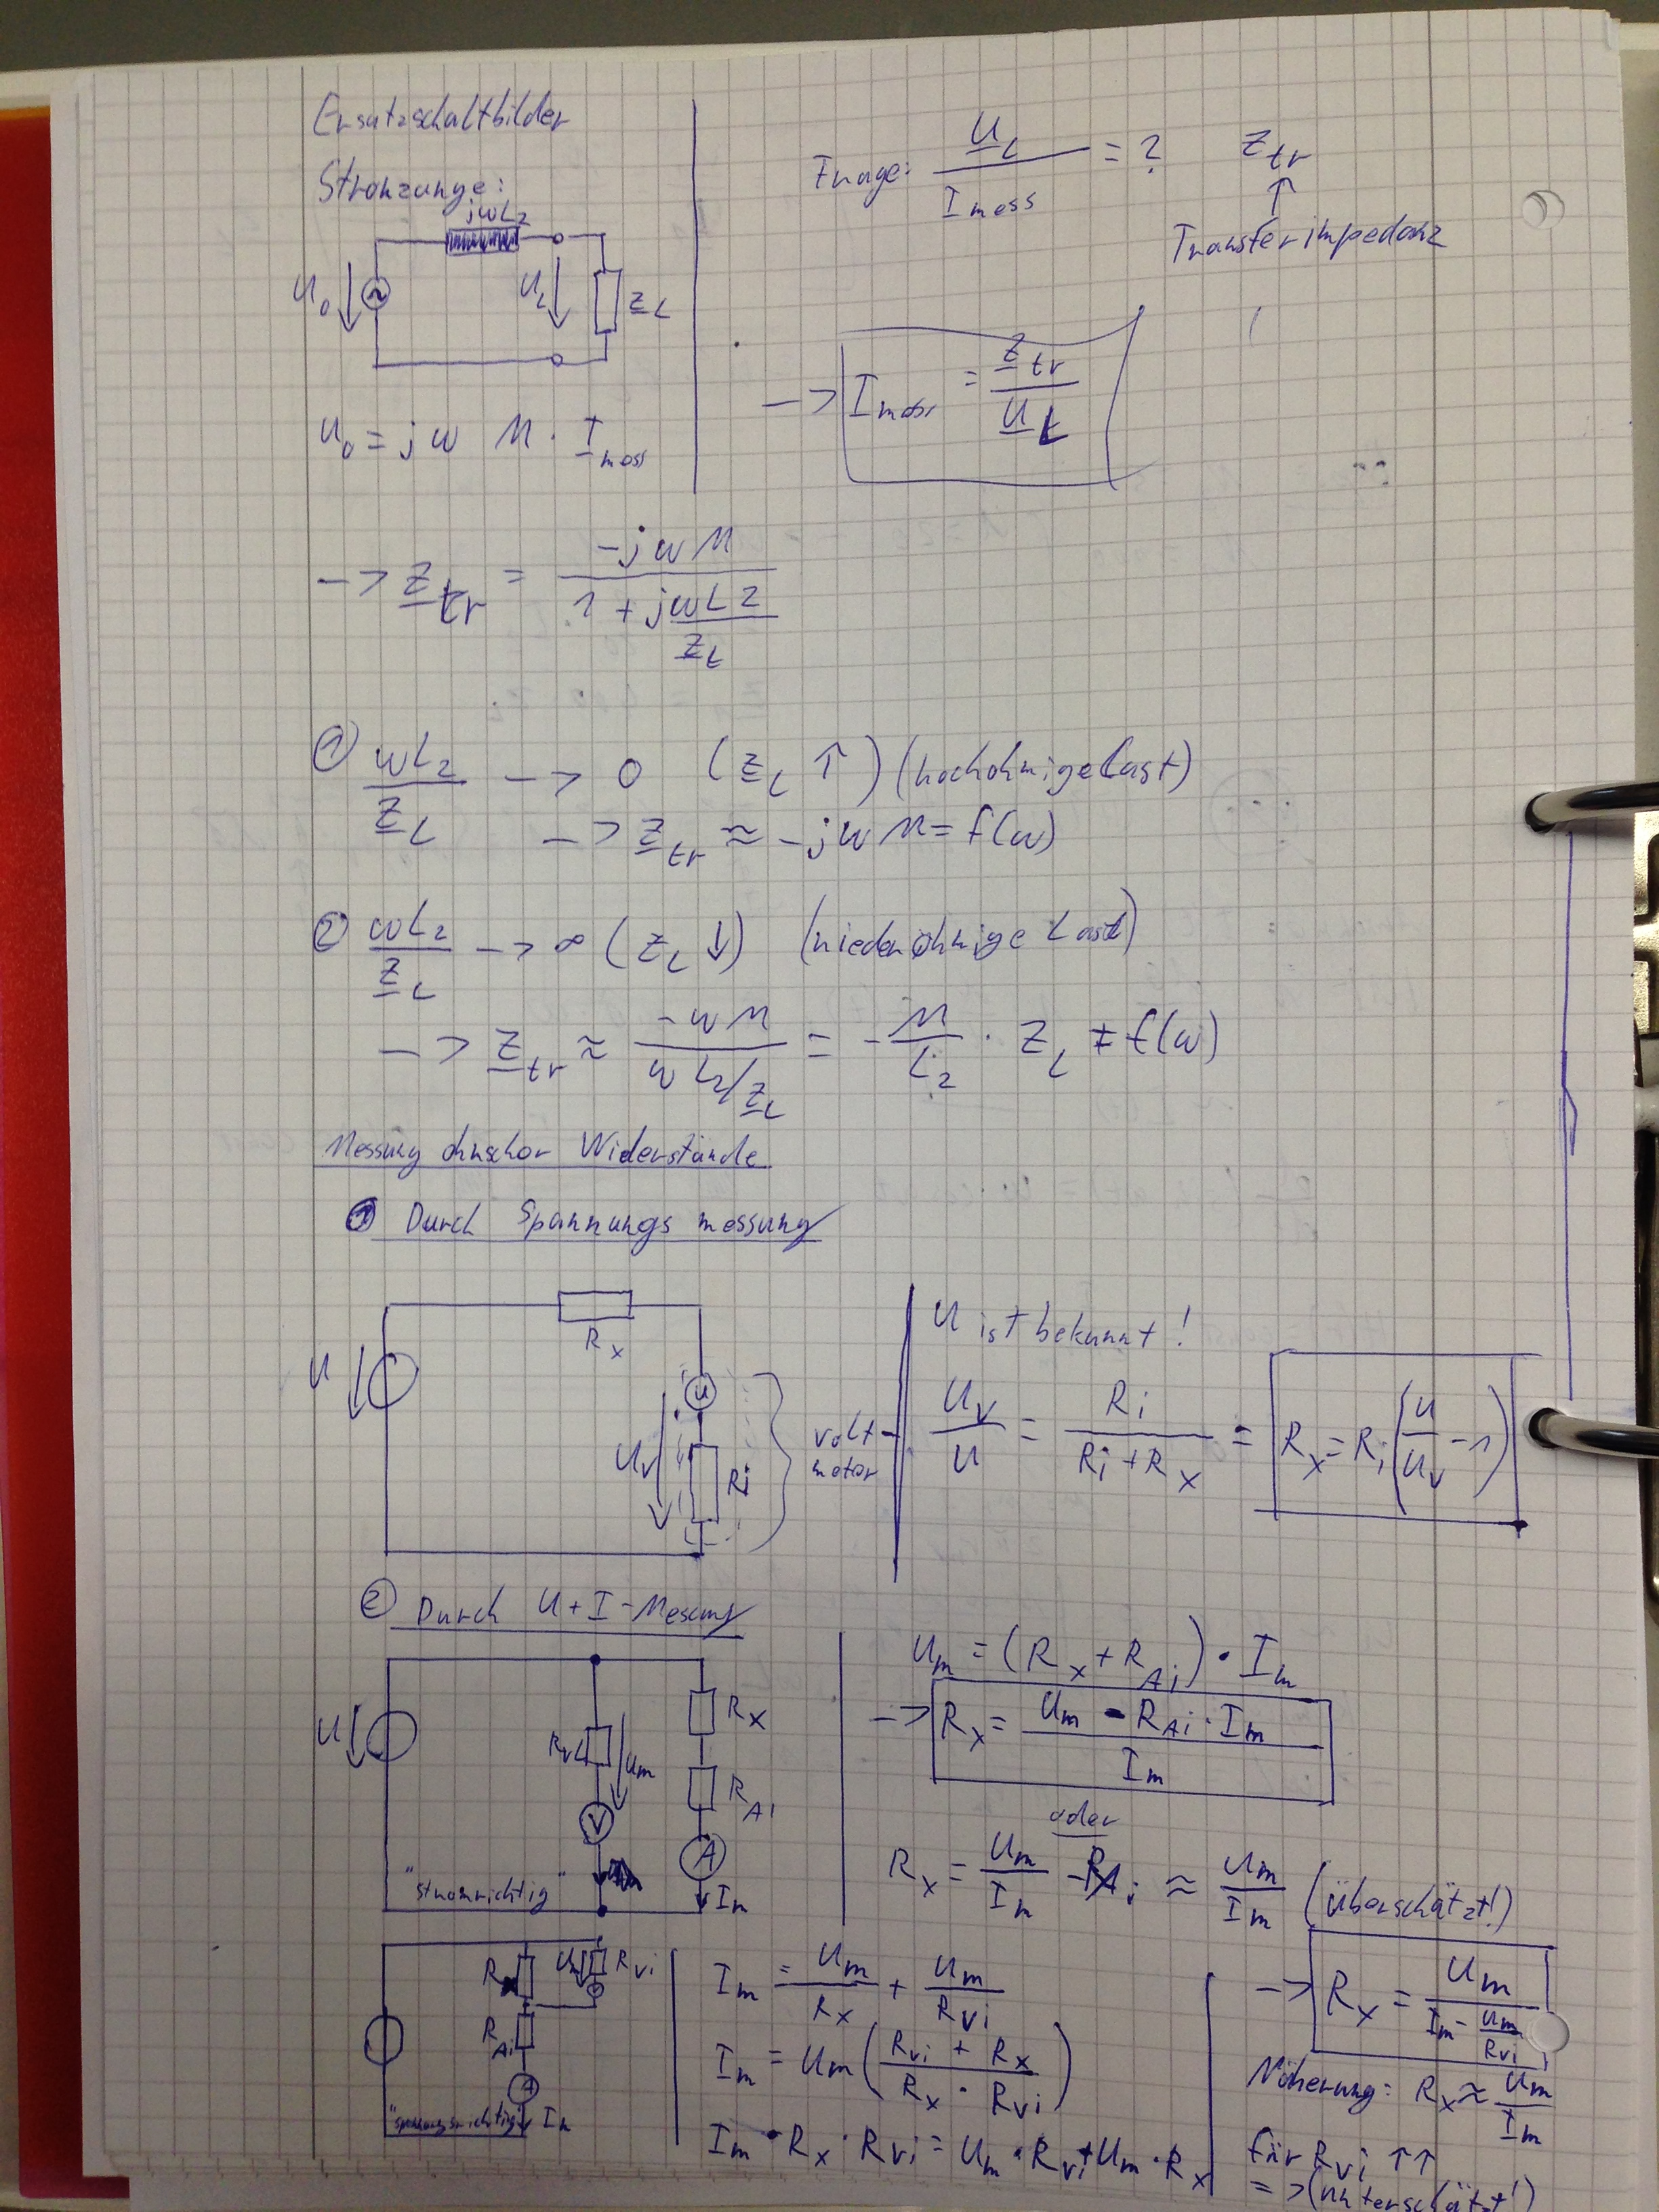 Ersatzschaltbilder
Stromzange:
jωL₂
U₀
U_L
Z_L
U₀ = jω M · I_mess
Frage: U_L / I_mess = ?   Z_tr
↑
Transferimpedanz
-> I_mess = Z_tr / U_L
-> Z_tr = -jωM / (1 + jωL2 / Z_L)
① ωL₂ / Z_L -> 0 (Z_L ↑) (hochohmige Last)
-> Z_tr ≈ -jωM = f(ω)
② ωL₂ / Z_L -> ∞ (Z_L ↓) (niederohmige Last)
-> Z_tr ≈ -ωM / (ωL₂/Z_L) = - M/L₂ · Z_L ≠ f(ω)
Messung ohmscher Widerstände
① Durch Spannungsmessung
R_x
U
U
U_V
Ri
Volt-
meter
U ist bekannt!
U_V / U = R_i / (R_i + R_x) = R_x = R_i (U/U_V - 1)
② Durch U+I-Messung
U
R_Vi
U_m
V
R_x
R_Ai
A
I_m
"stromrichtig"
U_m = (R_x + R_Ai) · I_m
-> R_x = (U_m - R_Ai · I_m) / I_m
oder
R_x = U_m / I_m - R_Ai ≈ U_m / I_m (überschätzt!)
R_x
U_m
R_Vi
R_Ai
A
I_m
"spannungsrichtig"
I_m = U_m / R_x + U_m / R_Vi
I_m = U_m ((R_Vi + R_x) / (R_x · R_Vi))
I_m · R_x · R_Vi = U_m · R_Vi + U_m · R_x
-> R_x = U_m / (I_m - U_m / R_Vi)
Näherung: R_x ≈ U_m / I_m
für R_Vi ↑↑
=> (unterschätzt!)